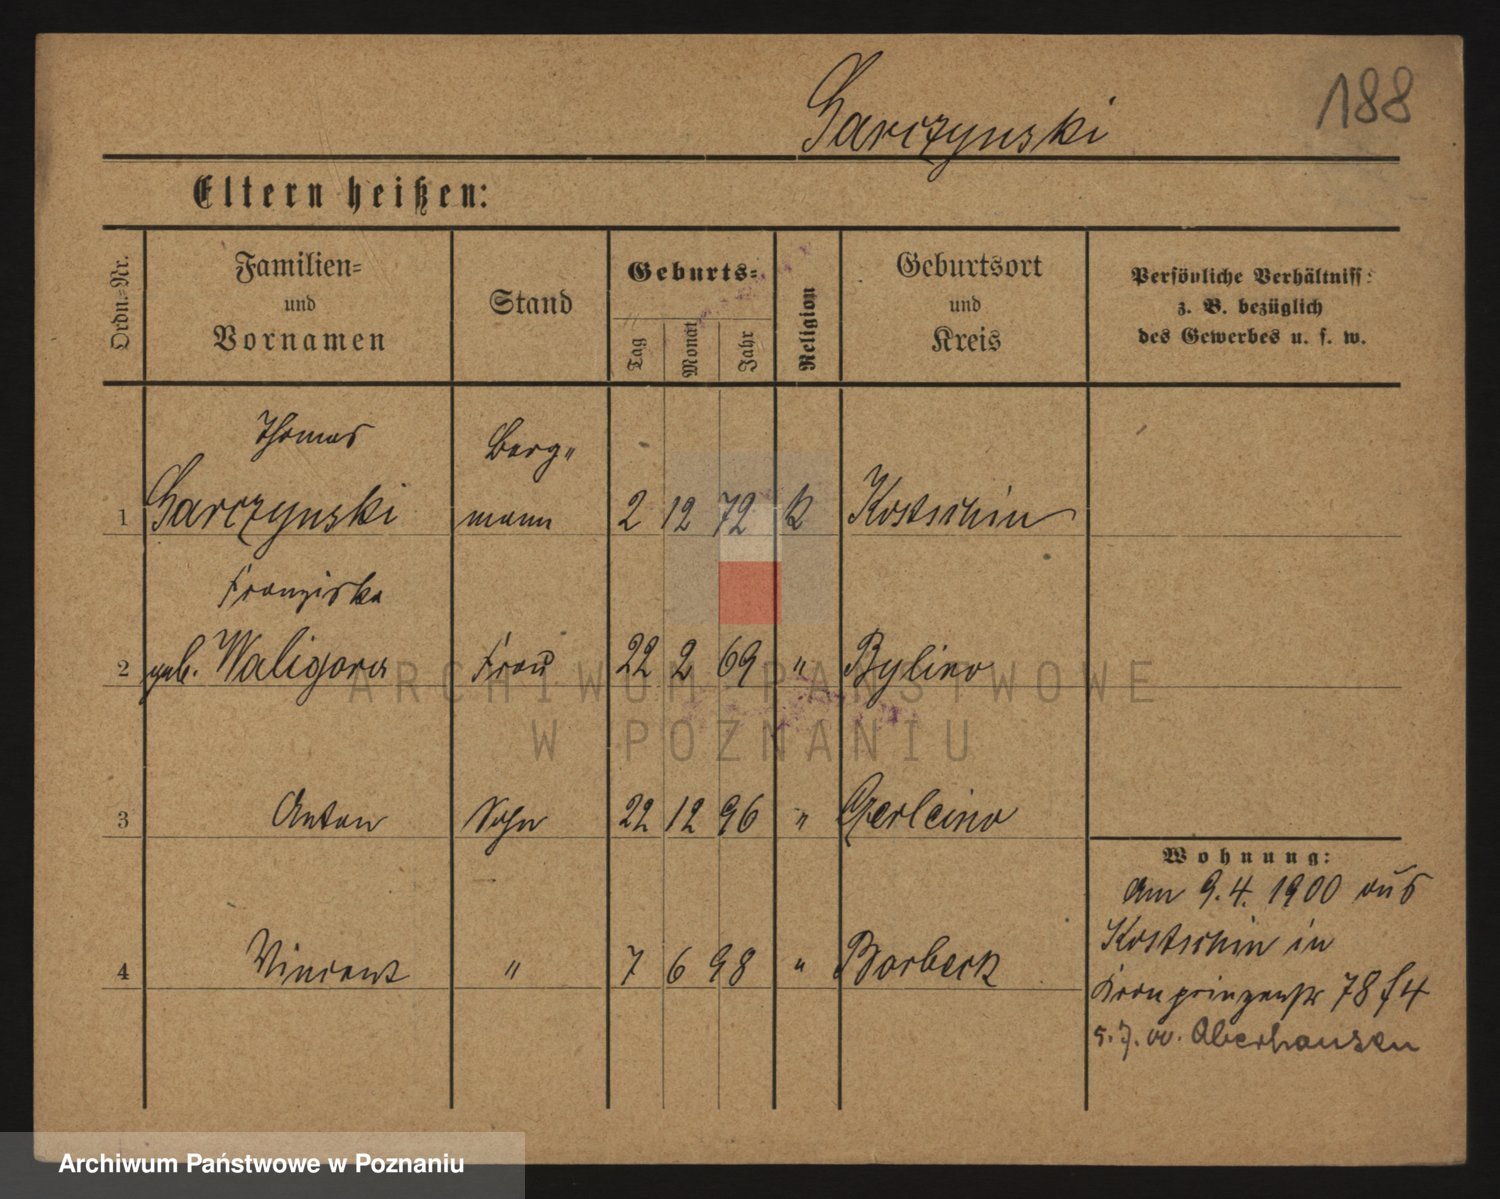 188
Garczynski
Eltern heißen:
Ordn.-Nr.
Familien-
und
Vornamen
Stand
Geburts-
Tag
Monat
Jahr
Religion
Geburtsort
und
Kreis
Persönliche Verhältniss
z. B. bezüglich
des Gewerbes u. s. w.
Thomas Berg"
1 Garczynski mann 2 12 72 k Kostschin
Franziska
2 geb. Waligora Frau 22 2 69 " Bylino
ARCHIWUM PAŃSTWOWE
W POZNANIU
3 Anton Sohn 22 12 96 "
4 Vincent " 7 6 98 " Borbeck
Wohnung:
Am 9.4.1900 aus
Kostschin in
Kronprinzenstr 78 f 4
5.7.00. Oberhausen
Archiwum Państwowe w Poznaniu